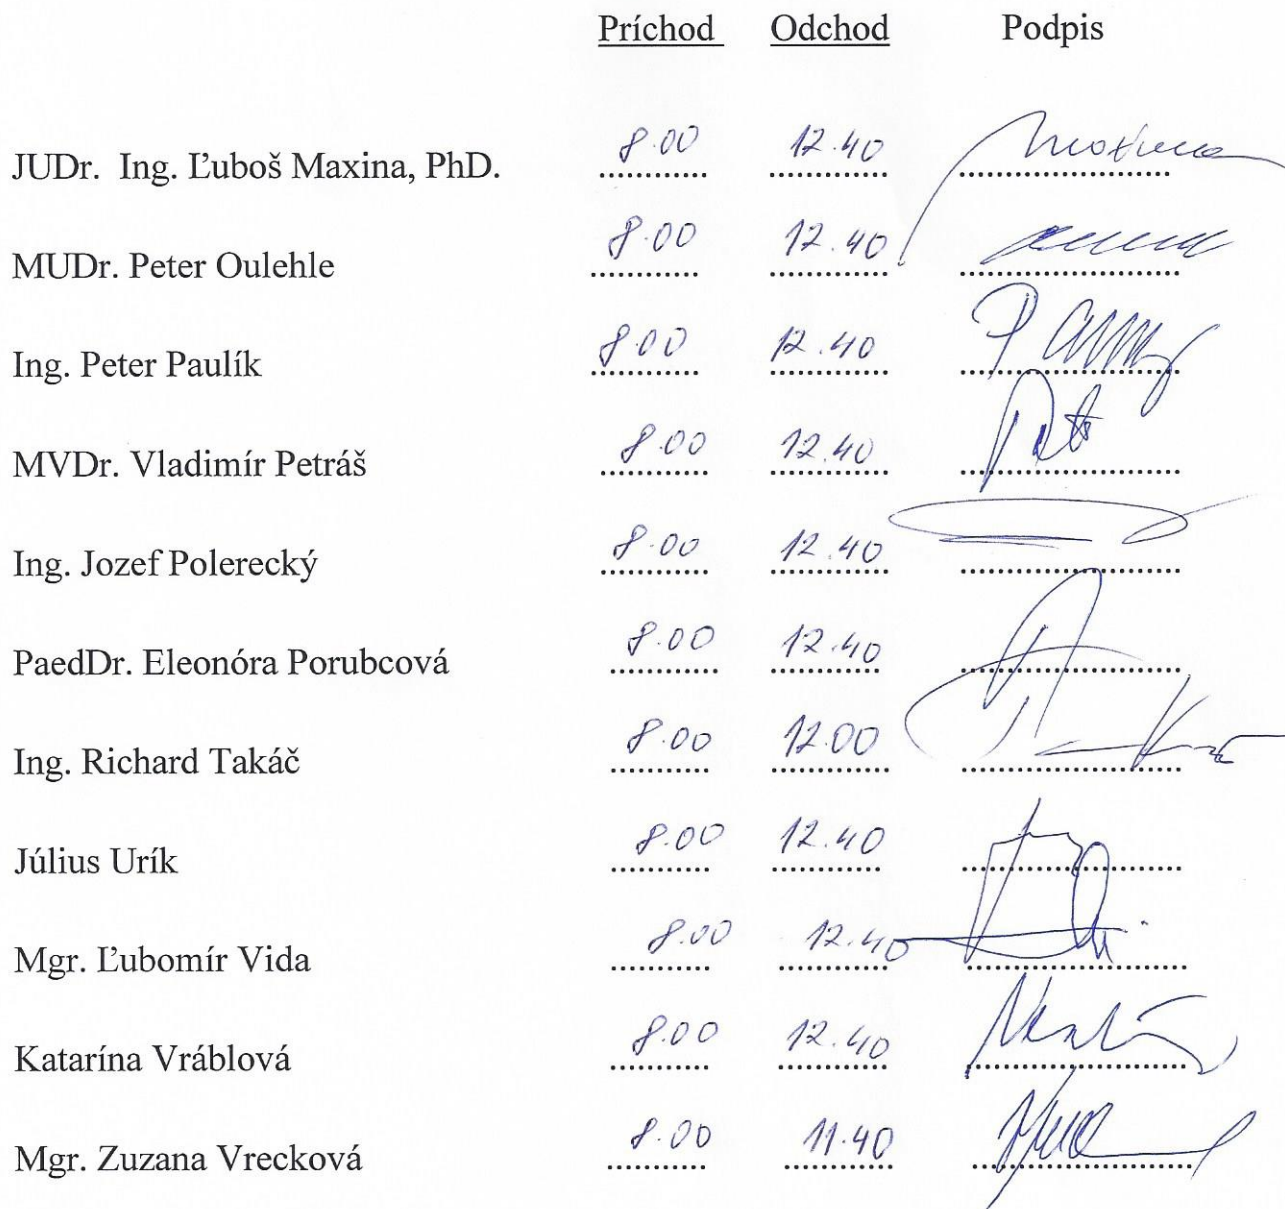 Príchod Odchod Podpis
JUDr. Ing. Ľuboš Maxina, PhD. 8.00 12.40
MUDr. Peter Oulehle 8.00 12.40
Ing. Peter Paulík 8.00 12.40
MVDr. Vladimír Petráš 8.00 12.40
Ing. Jozef Polerecký 8.00 12.40
PaedDr. Eleonóra Porubcová 8.00 12.40
Ing. Richard Takáč 8.00 12.00
Július Urík 8.00 12.40
Mgr. Ľubomír Vida 8.00 12.40
Katarína Vráblová 8.00 12.40
Mgr. Zuzana Vrecková 8.00 11.40